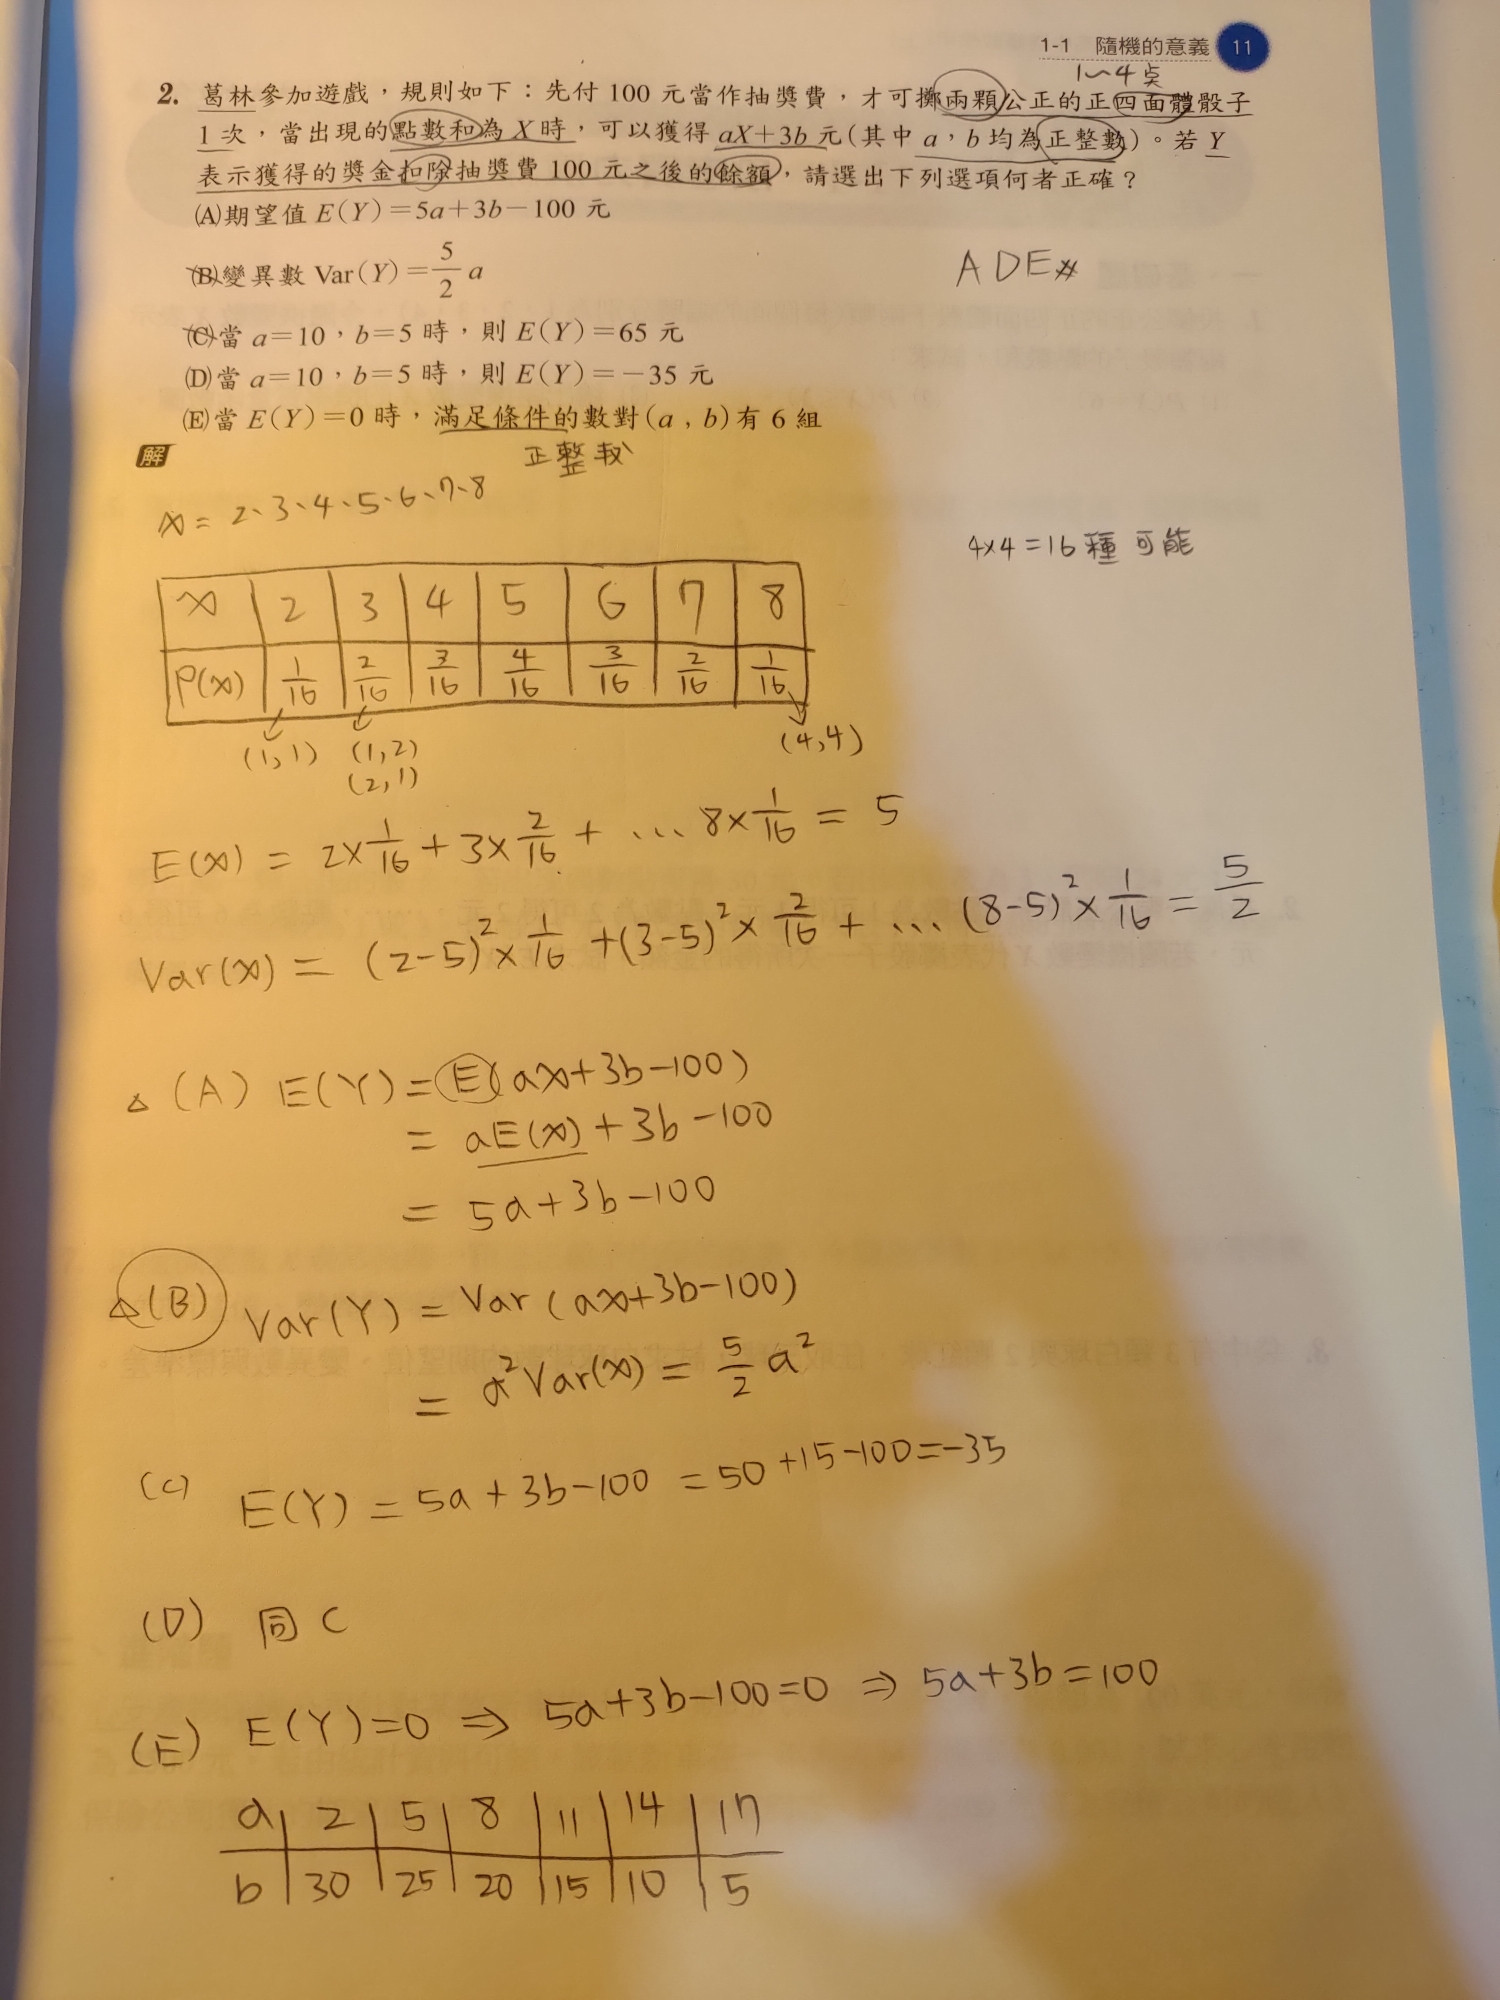 1-1 隨機的意義 11
1~4点
2. 葛林參加遊戲,規則如下:先付 100 元當作抽獎費,才可擲兩顆公正的正四面體骰子
1 次,當出現的點數和為 X 時,可以獲得 aX+3b 元(其中 a,b 均為正整數)。若 Y
表示獲得的獎金扣除抽獎費 100 元之後的餘額,請選出下列選項何者正確?
(A)期望值 E(Y)=5a+3b-100 元
(B)變異數 Var(Y)=5/2 a
ADE#
(C)當 a=10,b=5 時,則 E(Y)=65 元
(D)當 a=10,b=5 時,則 E(Y)=-35 元
(E)當 E(Y)=0 時,滿足條件的數對(a,b)有 6 組
解
正整
x = 2、3、4、5、6、7、8
4x4=16種可能
x 2 3 4 5 6 7 8
P(x) 1/16 2/16 3/16 4/16 3/16 2/16 1/16
(1,1) (1,2) (4,4)
(2,1)
E(x) = 2x1/16 + 3x2/16 + ... 8x1/16 = 5
Var(x) = (2-5)²x1/16 +(3-5)²x2/16 + ... (8-5)²x1/16 = 5/2
△ (A) E(Y) = E(ax+3b-100)
= aE(x) + 3b-100
= 5a+3b-100
△(B) Var(Y) = Var(ax+3b-100)
= a²Var(x) = 5/2 a²
(C) E(Y) = 5a+3b-100 = 50+15-100=-35
(D) 同C
(E) E(Y)=0 ⇒ 5a+3b-100=0 ⇒ 5a+3b=100
a 2 5 8 11 14 17
b 30 25 20 15 10 5